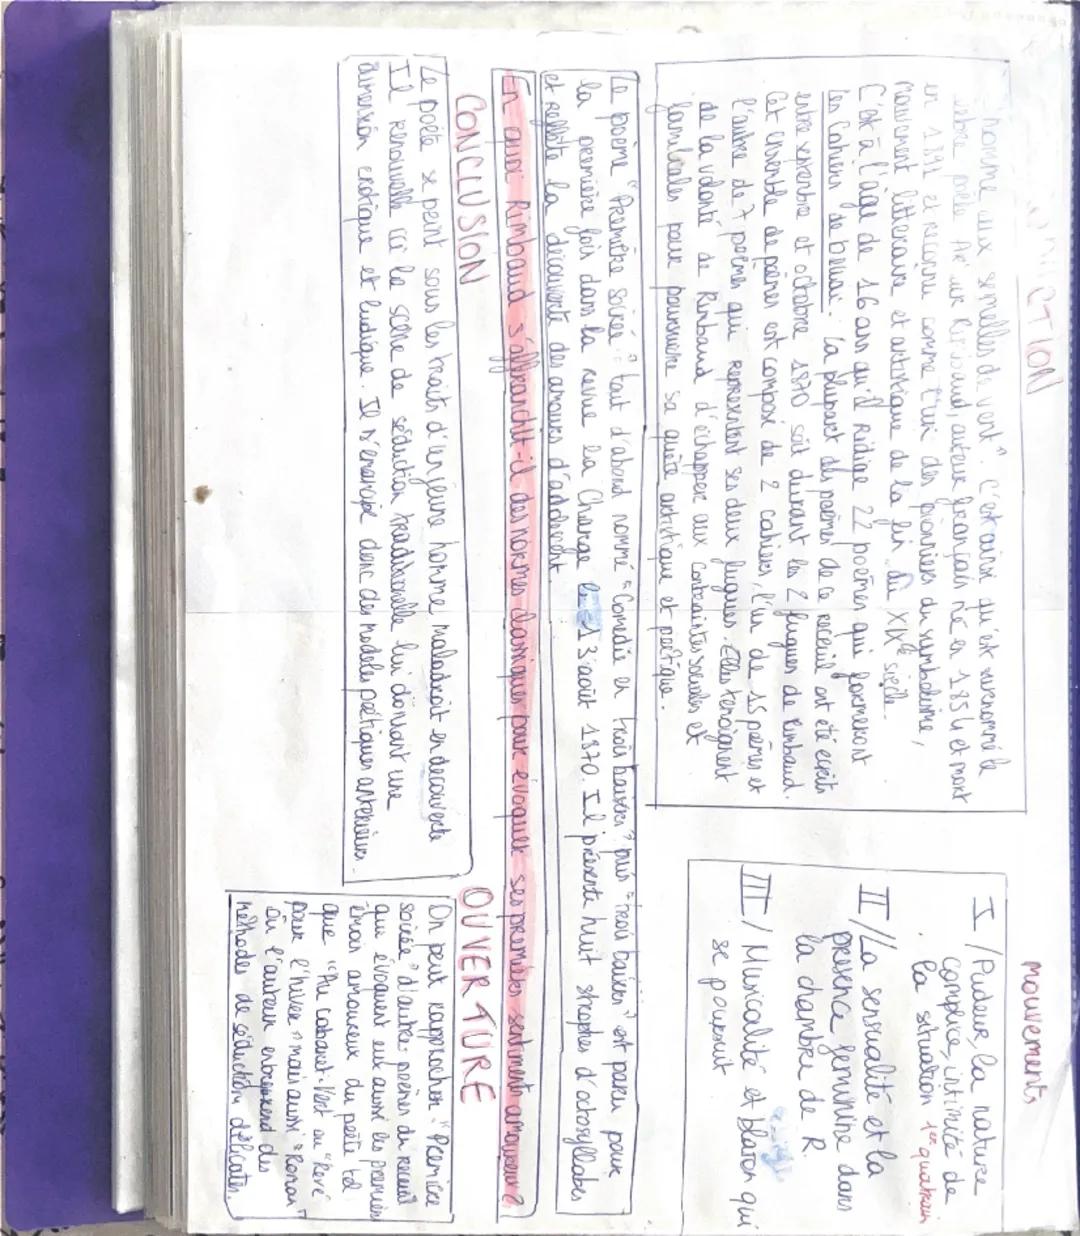 CTION
homme aux semelles de vent". C'est ainsi qu'est surnommé le
poète Rimbaud, auteur français né en 1854 et mort
en 1891 et reconnu comme l'un des pionniers du symbolisme,
mouvement litteraire et artistique de la fin du XIXe siècle.
C'est à l'âge de 16 ans qu'il Rédige 22 poèmes qui formeront
Les Cahiers de Douai. La plupart des poèmes de ce receuil ont été écrits
entre septembre et octobre 1870 soit durant les 2 fugues de Rimbaud.
Cet ensemble de poèmes est composé de 2 cahiers, l'un de 15 poèmes et
l'autre de 7 poèmes qui représentent ses deux fugues. Elles temoignent
de la volonté de Rimbaud d'échapper aux contraintes sociales et
familiales pour poursuivre sa quête artistique et poétique.
mouvements
I / Pudeur, la nature
complice, intimité de
la situation 1er quatrain
II / La sensualité et la
présence féminine dans
la chambre de R.
III / Musicalité et blason qui
se poursuit
Le poème "Première soirée" tout d'abord nommé "Comédie en trois baisers" puis "trois baisers" est paru pour
la première fois dans la revue la Charge le 13 août 1870. Il présente huit strophes d'octosyllabes
et reflète la découverte des amours d'adolescent
En quoi Rimbaud s'affranchit-il des normes classiques pour évoquer ses premiers sentiments amoureux ?
CONCLUSION
Le poète se peint sous les traits d'un jeune homme maladroit en découverte
Il renouvelle ici la scène de séduction traditionnelle lui donnant une
dimension érotique et ludique. Il s'émancipe donc des modèles poétiques antérieurs.
OUVERTURE
On peut rapprocher "Première
soirée" d'autres poèmes du recueil
qui évoquent eux aussi les premiers
émois amoureux du poète tel
que "Au cabaret-Vert ou "Rêvé
pour l'hiver" mais aussi "Roman"
où l'auteur entreprend des
méthodes de séduction délicates.